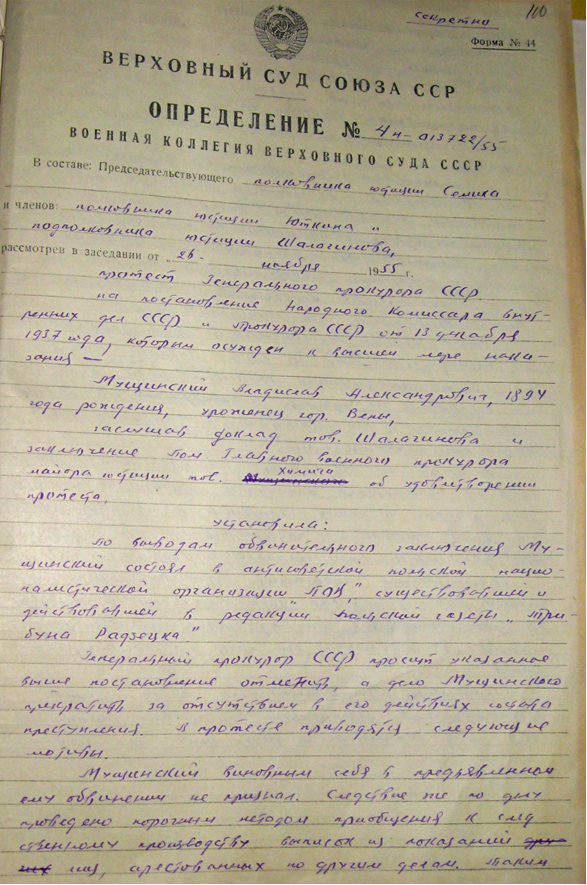 секретно
110
Форма № 44
ВЕРХОВНЫЙ СУД СОЮЗА ССР
ОПРЕДЕЛЕНИЕ № 4н-013722/55
ВОЕННАЯ КОЛЛЕГИЯ ВЕРХОВНОГО СУДА СССР
В составе: Председательствующего полковника юстиции Семика
и членов: полковника юстиции Юткина и
подполковника юстиции Шалагинова,
рассмотрев в заседании от 26 ноября 1955 г.
протест Генерального прокурора СССР
на постановление Народного Комиссара внут-
ренних дел СССР и Прокурора СССР от 13 декабря
1937 года, которым осужден к высшей мере нака-
зания —
Мущинский Владислав Александрович, 1894
года рождения, уроженец гор. Вены,
заслушав доклад тов. Шалагинова и
заключение пом Главного военного прокурора
майора юстиции тов. Химича об удовлетворении
протеста,
установила:
По выводам обвинительного заключения Му-
щинский состоял в антисоветской польской нацио-
налистической организации ПОВ", существовавшей и
действовавшей в редакции польской газеты „Три-
буна Радзецка"
Генеральный прокурор СССР просит указанное
выше постановление отменить, а дело Мущинского
прекратить за отсутствием в его действиях состава
преступления. В протесте приводятся следующие
мотивы.
Мущинский виновным себя в предъявленном
ему обвинении не признал. Следствие же по делу
проведено порочным методом приобщения к след
ственному производству выписок из показаний дру-
гих лиц, арестованных по другим делам. Таким